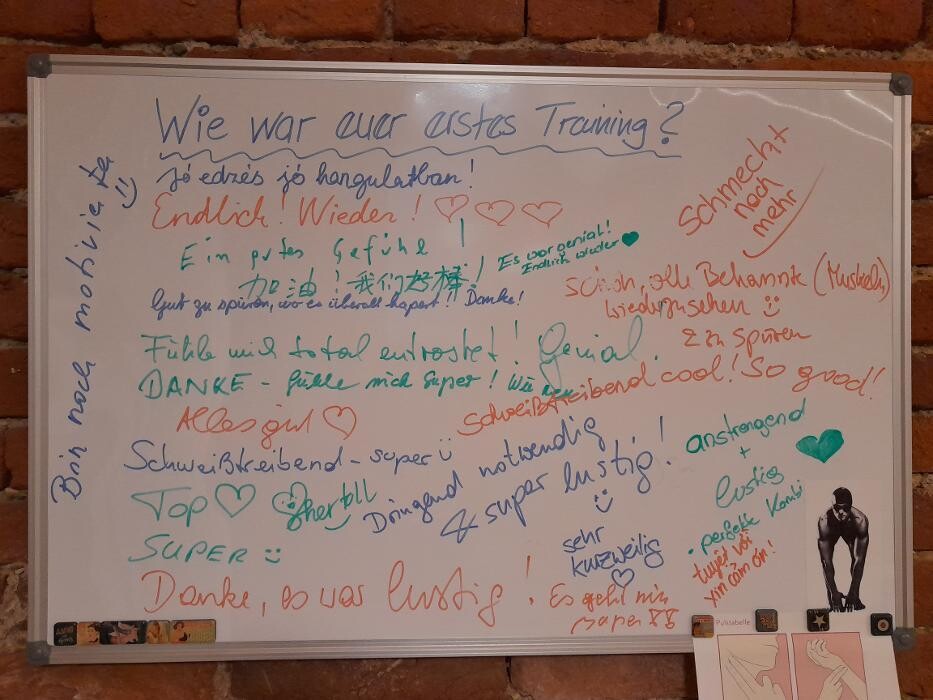 Wie war euer erstes Training?
Jó edzés jó hangulatban!
Endlich! Wieder! ♡♡♡
Ein gutes Gefühl!
Es war genial!
Endlich wieder ♥
加油!我们好棒!
Gut zu spüren, wo es überall hapert!! Danke!
Schmeckt
nach
mehr
schön, alle Bekannte (Muskeln)
wiederzusehen
z zu spüren
Fühle mich total entrostet! Genial.
DANKE - fühle mich super! Wie neu
Schweißtreibend cool! So good!
Alles gut ♡
Schweißtreibend - super
Dringend notwendig
& super lustig!
anstrengend
+
lustig
• perfekte Kombi
♥
TOP ♡
toll
SUPER
sehr
kurzweilig
♡
tuyệt vời
xin cảm ơn!
Danke, es war lustig!
Es geht mir
super
Bin noch motivierter
Pulstabelle